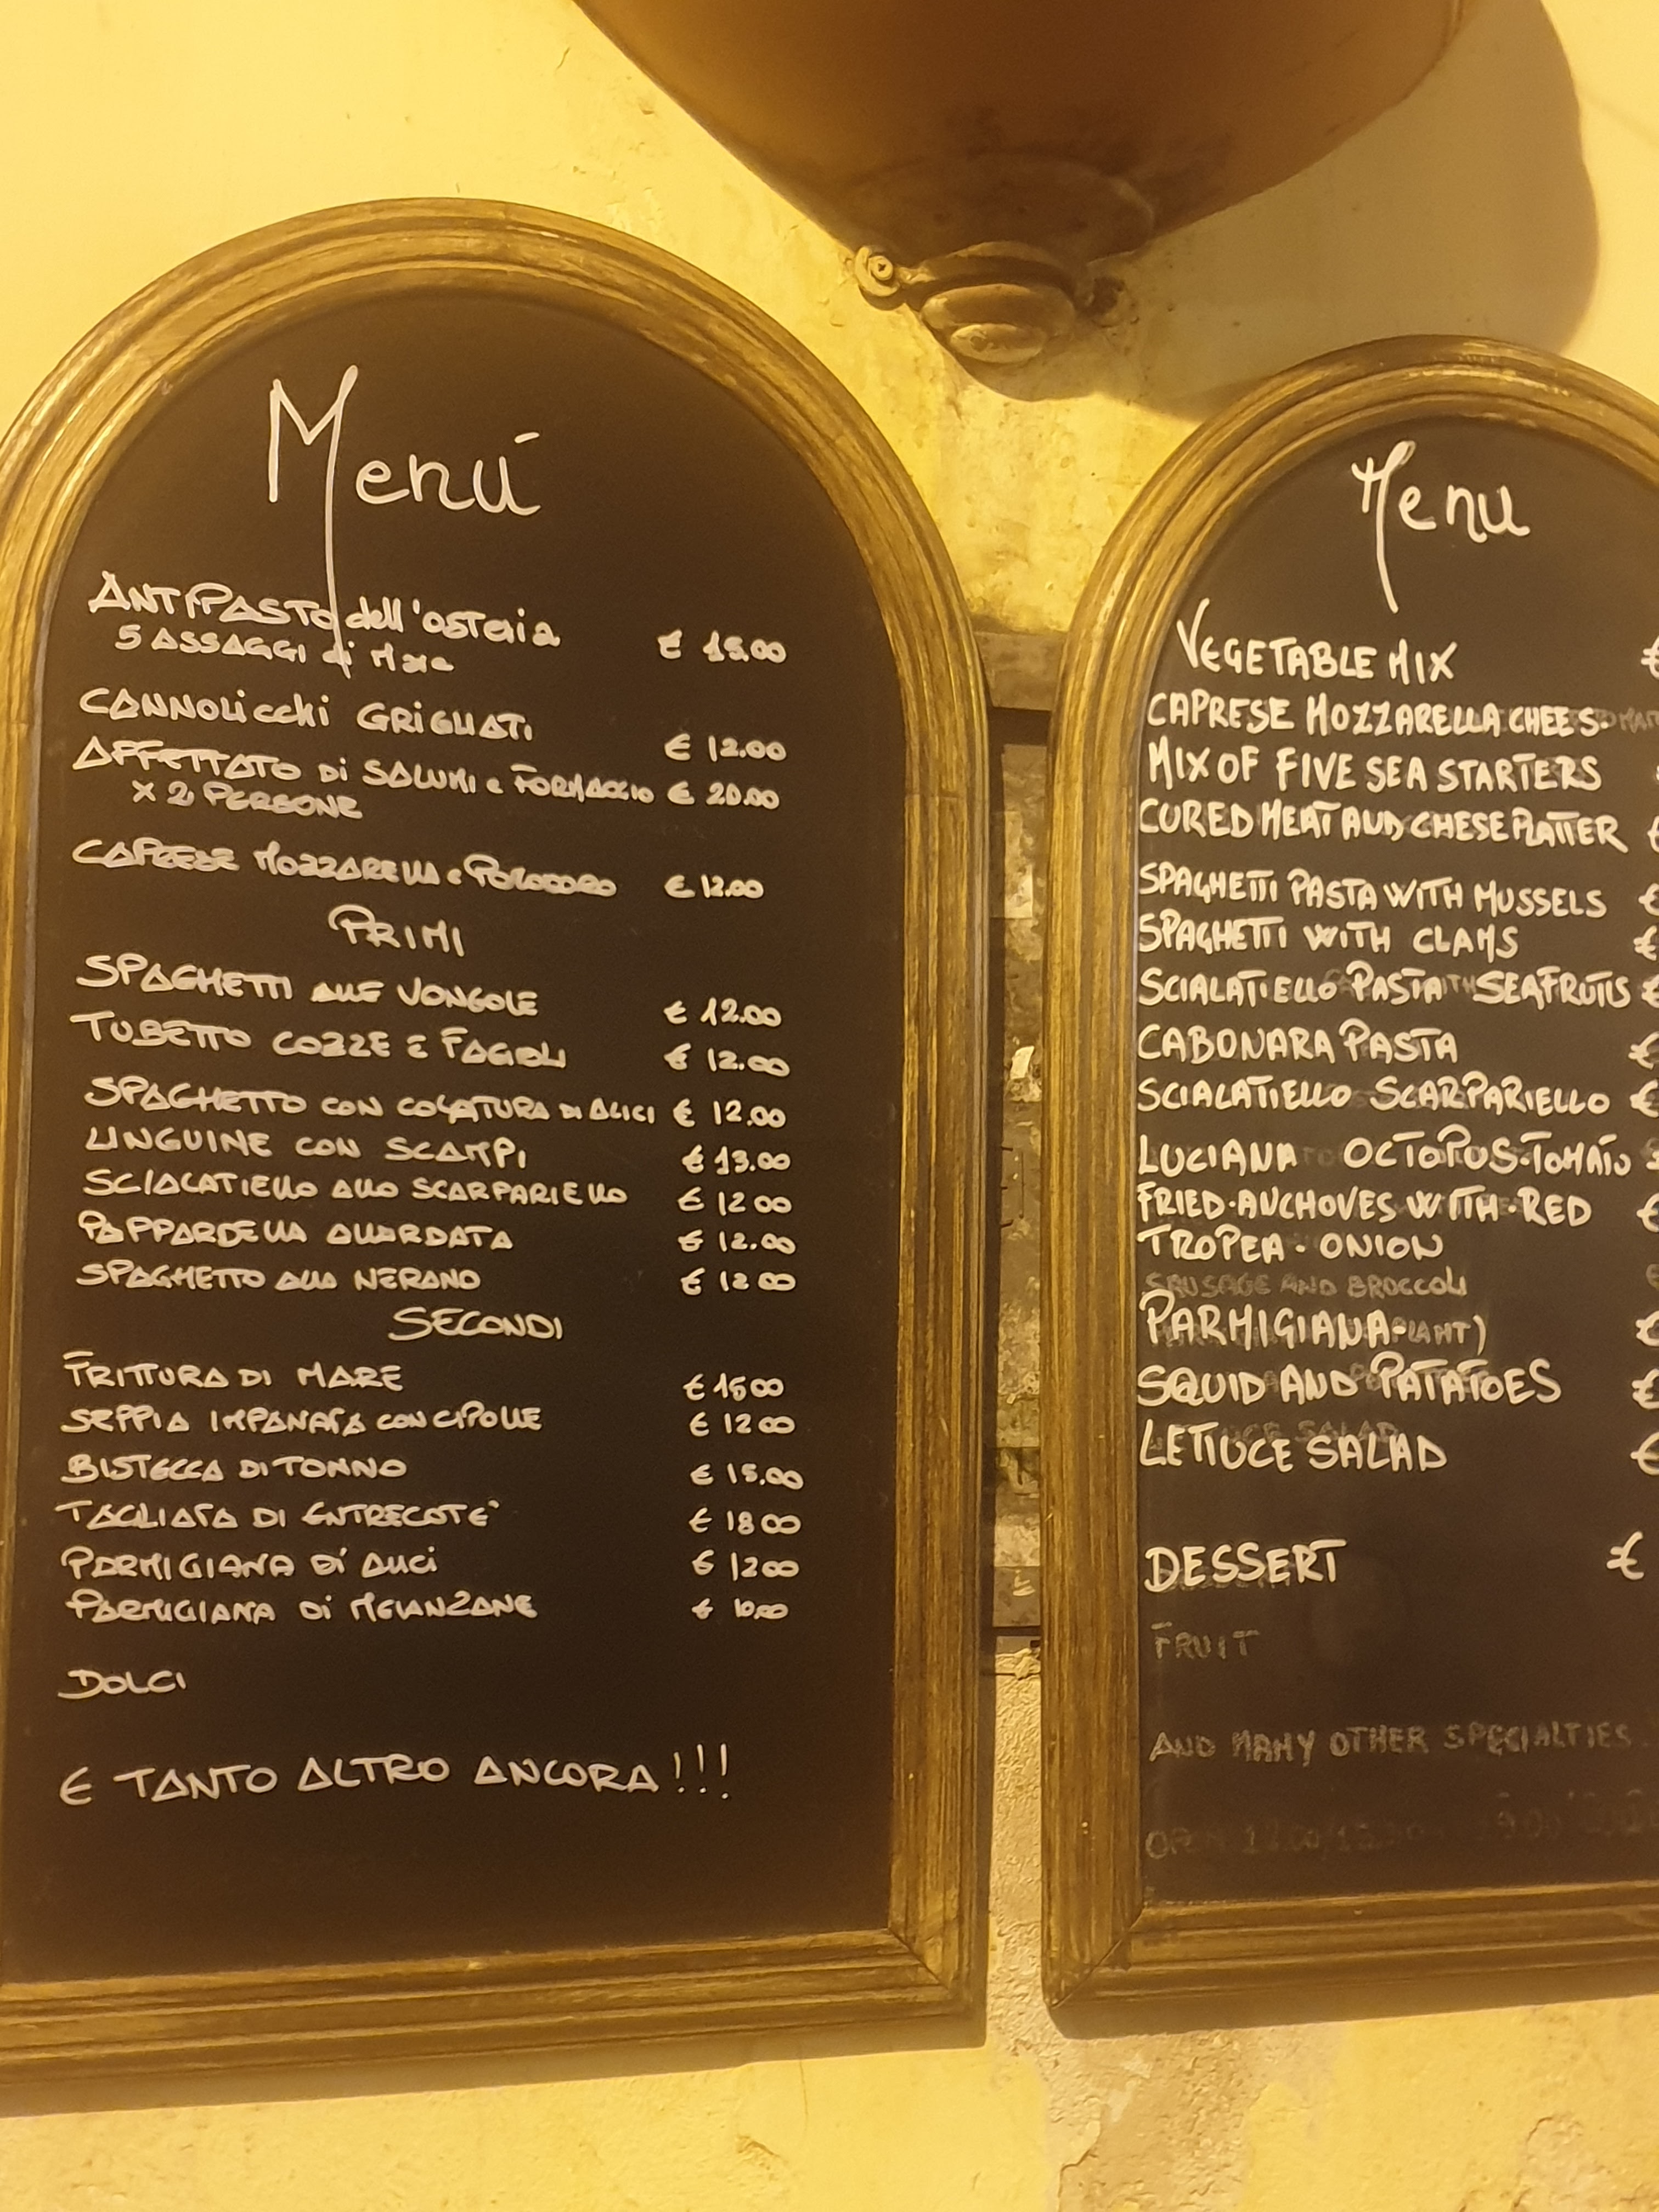 Menú
ANTIPASTO dell'osteria
5 ASSAGGI di Mare € 15.00
CANNOLiccHi GRiGLiATi € 12.00
AFFETTATO Di SALUMI e FORMAGGIO € 20.00
X 2 PERSONE
CAPRESE MOZZARELLA e POMODORO € 12.00
PRIMI
SPAGHETTI ALLE VONGOLE € 12.00
TUBETTO COZZE E FAGOLI € 12.00
SPAGHETTO CON COLATURA DI ALICI € 12.00
LINGUINE CON SCAMPI € 13.00
SCIALATIELLO ALLO SCARPARIELLO € 12 00
PAPPARDELLA ALLARDATA € 12.00
SPAGHETTO ALLA NERANO € 12 00
SECONDI
FRITTURA DI MARE € 15 00
SEPPIA IMPANATA CON CIPOLLE € 12 00
BISTECCA DI TONNO € 15.00
TAGLIATA DI ENTRECOTE' € 18 00
PARMIGIANA Di ALICI € 12 00
PARMIGIANA Di MELANZANE € 10.00
DOLCI
E TANTO ALTRO ANCORA!!!
Menu
VEGETABLE MIX €
CAPRESE MOZZARELLA CHEES.
MIX OF FIVE SEA STARTERS
CURED MEAT AND CHESE PLATTER €
SPAGHETTI PASTA WITH MUSSELS €
SPAGHETTI WITH CLAMS €
SCIALATIELLO PASTA SEAFRUTIS €
CABONARA PASTA €
SCIALATIELLO SCARPARIELLO €
LUCIANA OCTOPUS.TOMATO
FRIED.ANCHOVES WITH.RED €
TROPEA . ONION
SAUSAGE AND BROCCOLI €
PARMIGIANA. €
SQUID AND PATATOES €
LETTUCE SALAD €
DESSERT €
FRUIT
AND MANY OTHER SPECIALTIES.